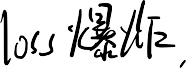 loss爆炸.